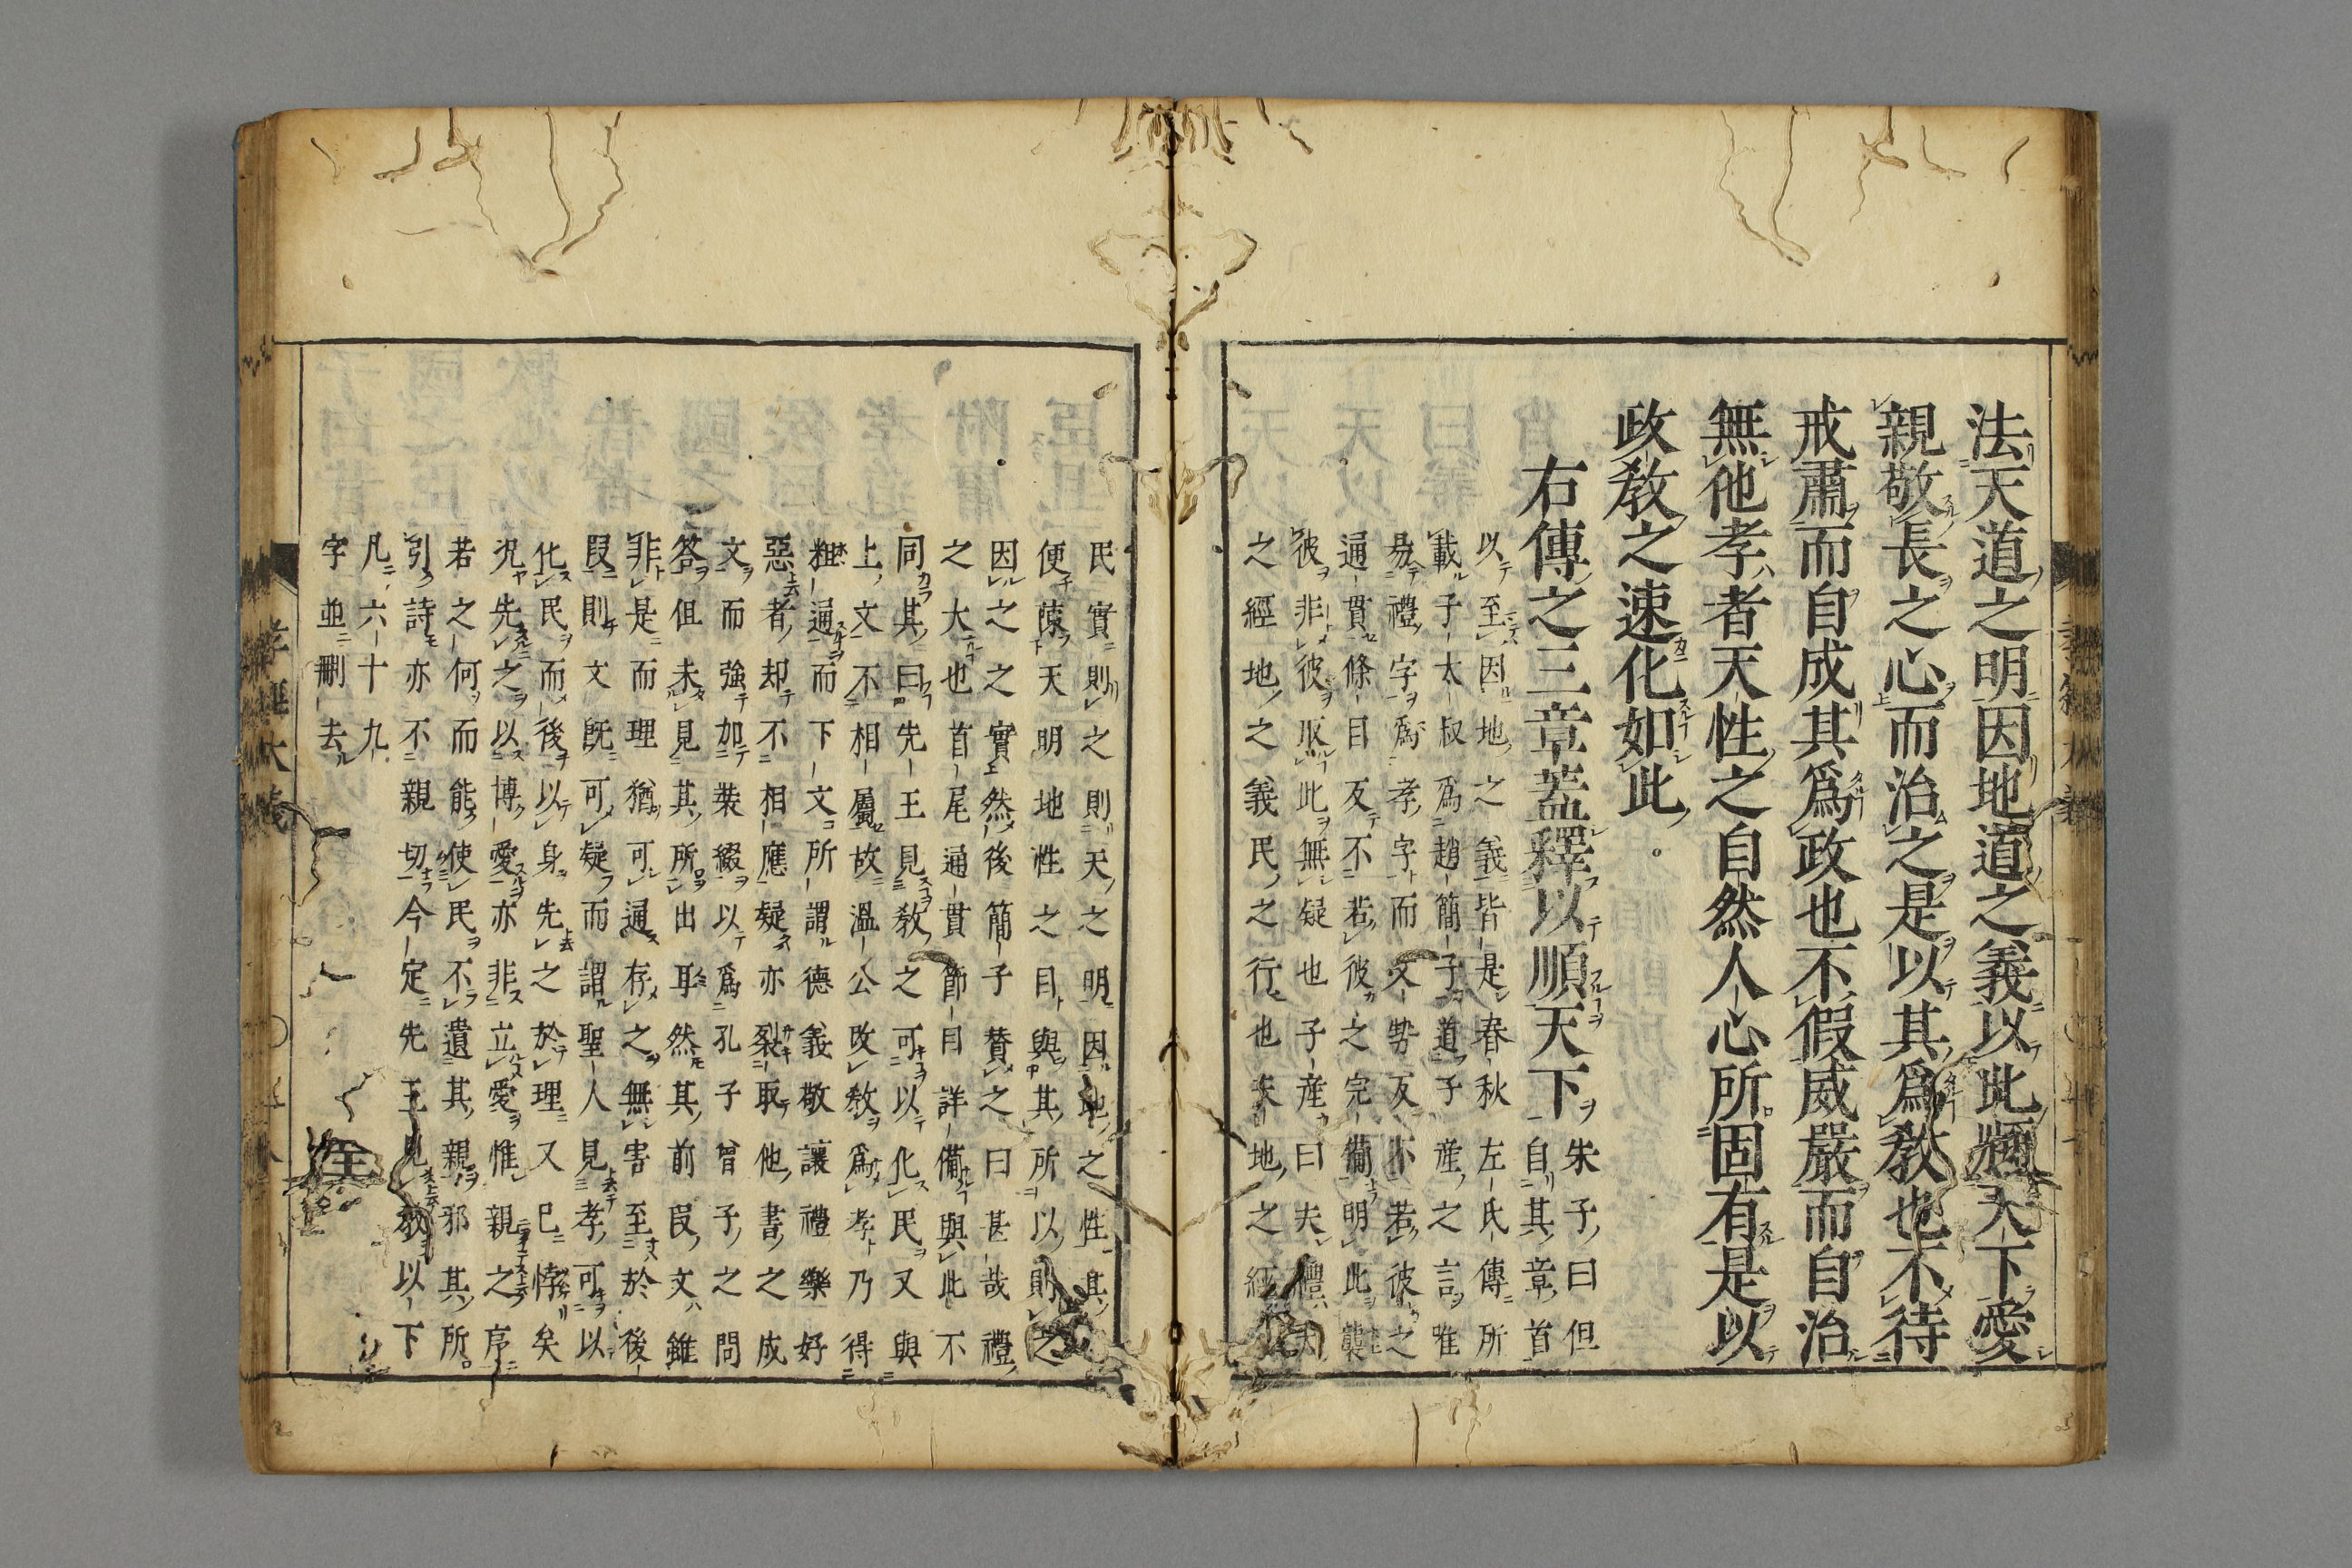 法天道之明因地道之義以此順天下愛
親敬長之心而治之是以其爲教也不待
戒肅而自成其爲政也不假威嚴而自治
無他孝者天性之自然人心所固有是以
政教之速化如此。
右傳之三章蓋釋以順天下
朱子曰但
自其章首
以至因地之義皆是春秋左氏傳所
載子太叔爲趙簡子道子產之言唯
易禮字爲孝字而文勢反不若彼之
通貫條目反不若彼之完備明此襲
彼非彼取此無疑也子產曰夫禮天
之經地之義民之行也夫地之經
民實則之則天之明因地之性其
便陳天明地性之目與其所以則之
因之之實然後簡子贊之曰甚哉禮
之大也首尾通貫節目詳備與此不
同其曰先王見教之可以化民又與
上文不相屬故溫公改教爲孝乃得
粗通而下文所謂德義敬讓禮樂好
惡者却不相應疑亦裂取他書之成
文而強加裝綴以爲孔子曾子之問
答但未見其所出耳然其前段文雖
非是而理猶可通存之無害至於後
段則文既可疑而謂聖人見孝可以
化民而後以身先之於理又已悖矣
況先之以博愛亦非立愛惟親之序
若之何而能使民不遺其親邪其所
引詩亦不親切今定先王見教以下
凡六十九
字並刪去
孝經大義